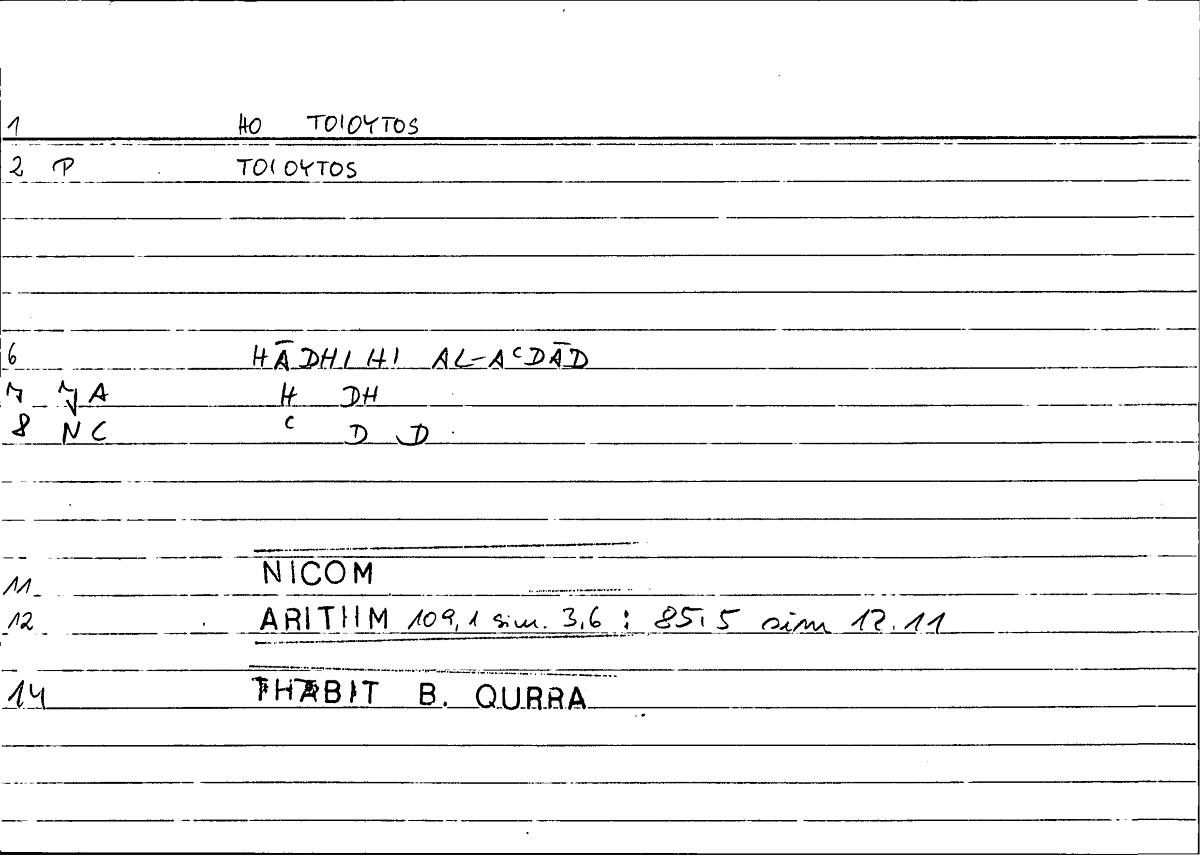 1 HO TOIOYTOS
2 P TOIOYTOS
6 HĀDHIHI AL-AᶜDĀD
7 7A H DH
8 NC ᶜ D D
11 NICOM
12 ARITHM 109,1 sim. 3,6 : 85,5 sim 12.11
14 THABIT B. QURRA